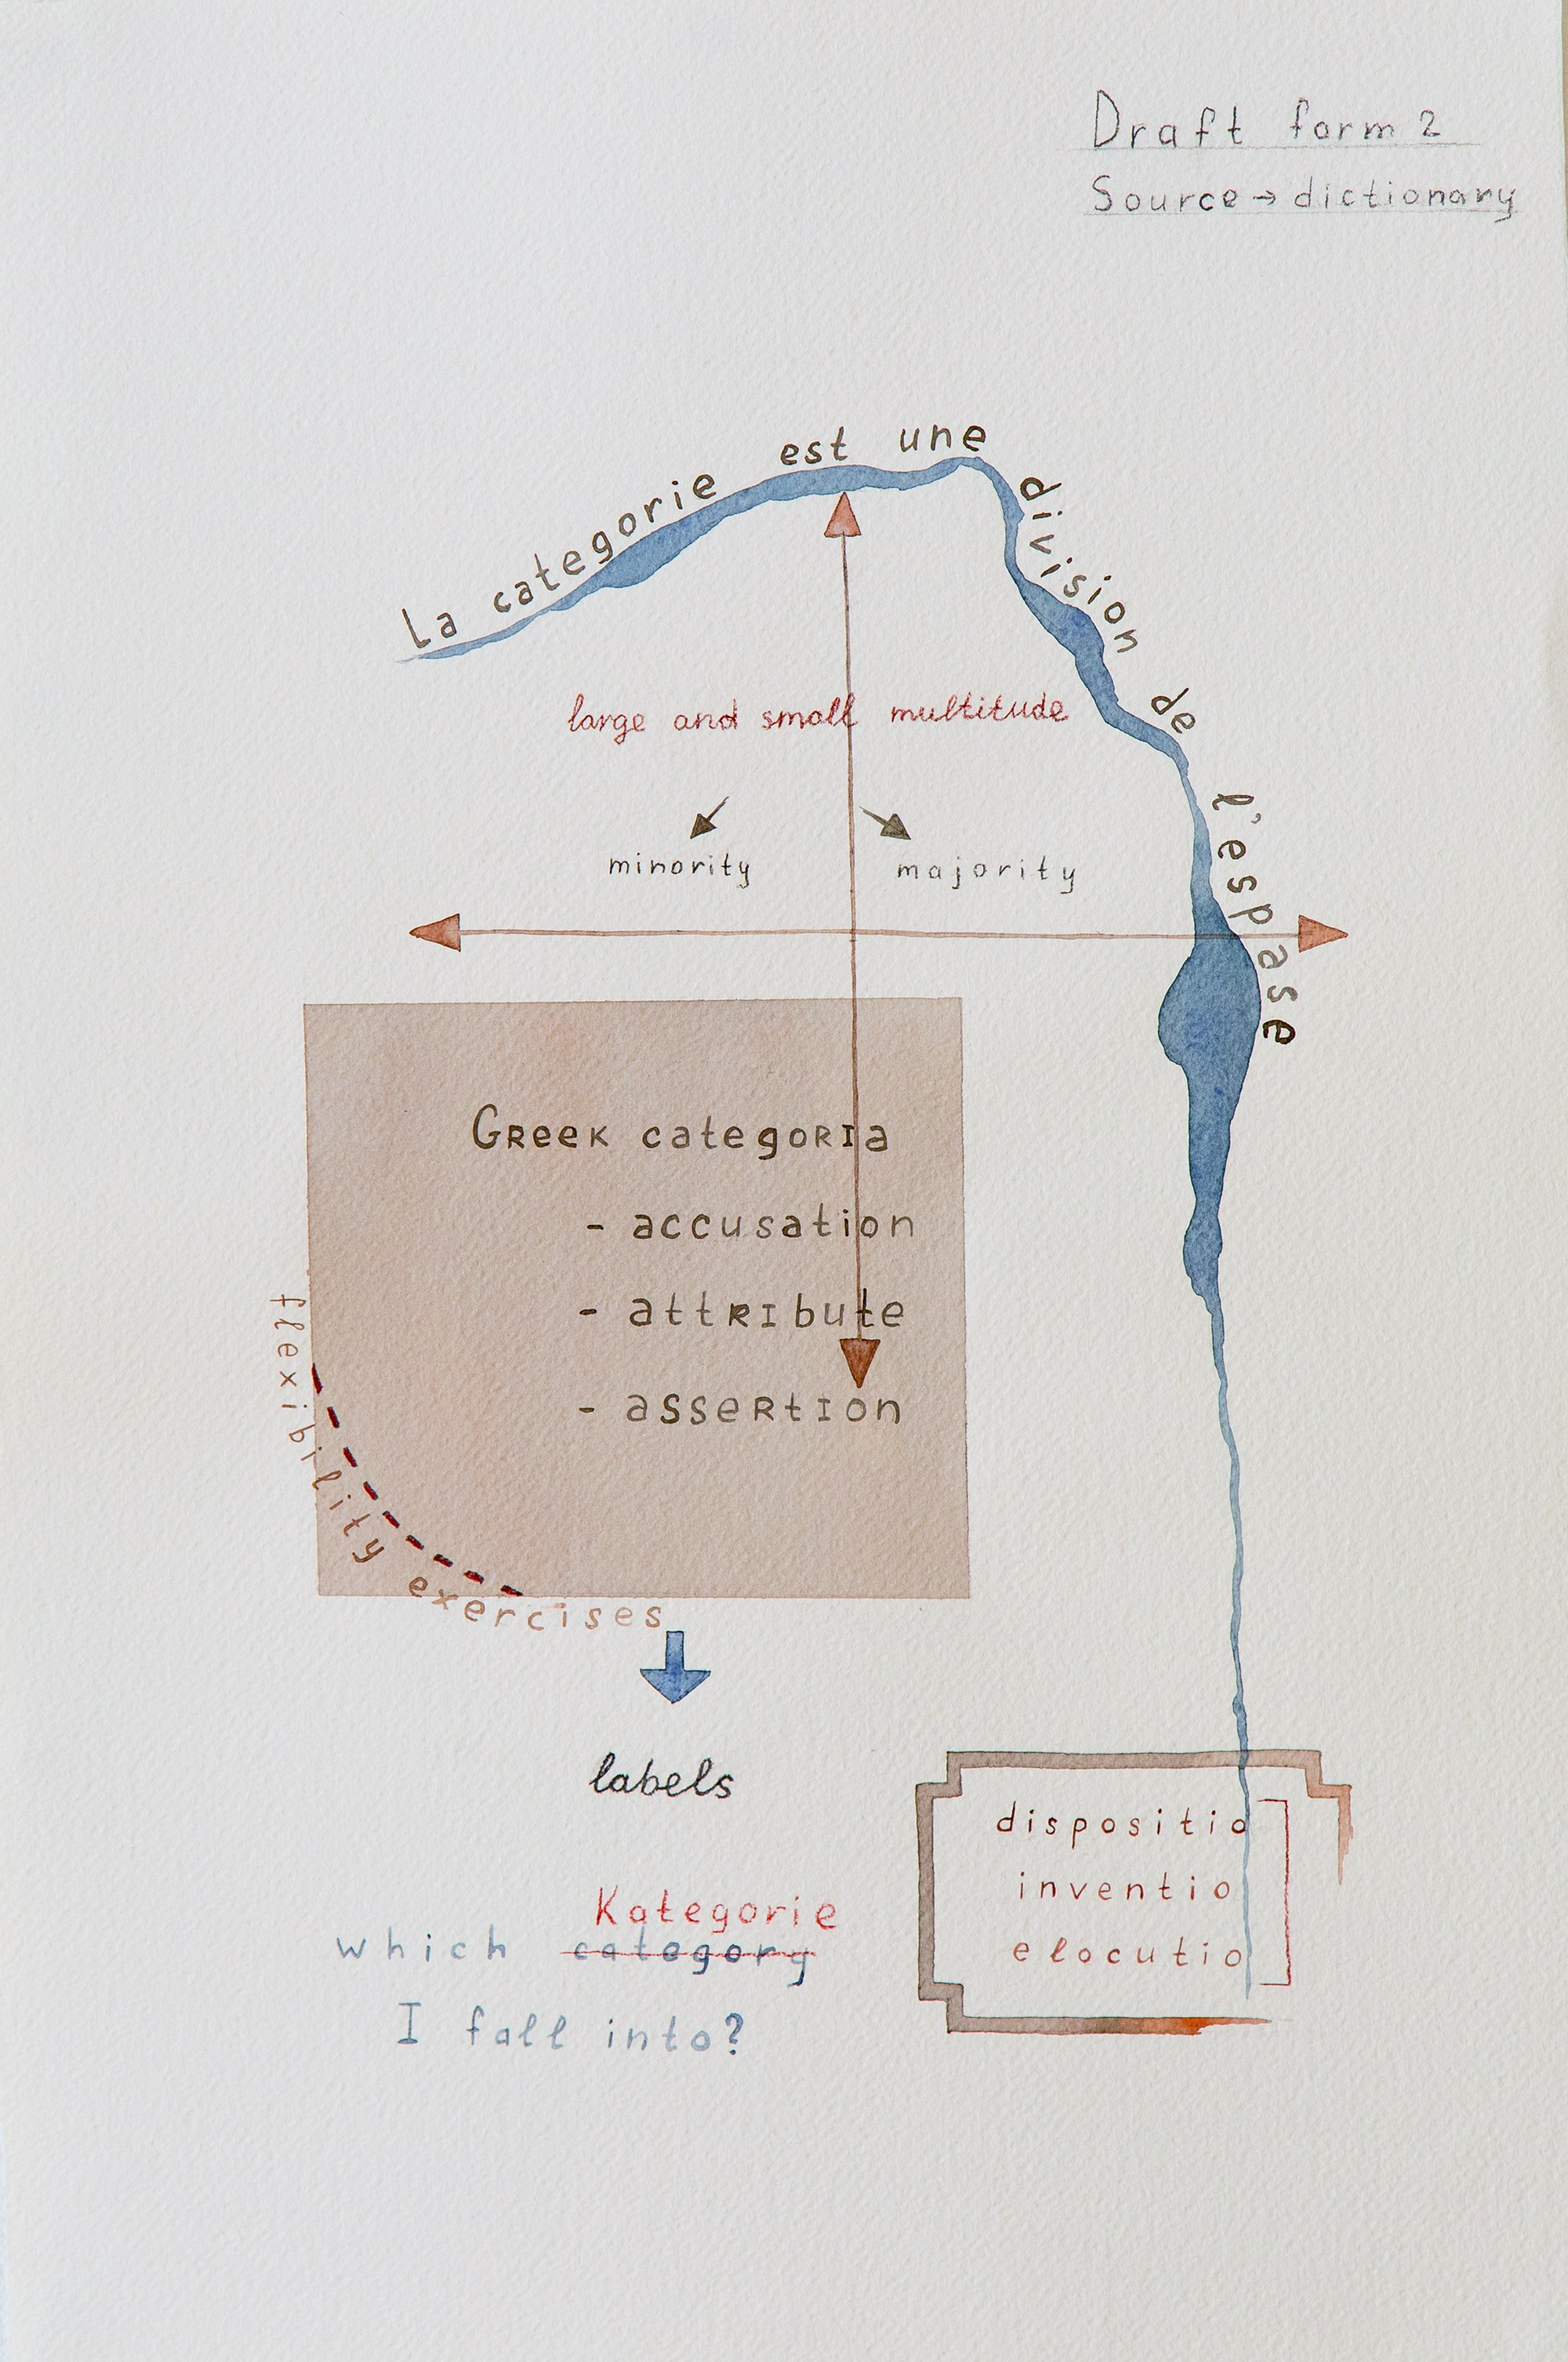 Draft form 2
Source → dictionary
La categorie est une division de l'espase
large and small multitude
minority
majority
Greek categoria
- accusation
- attribute
- assertion
flexibility exercises
labels
Kategorie
which category
I fall into?
dispositio
inventio
elocutio